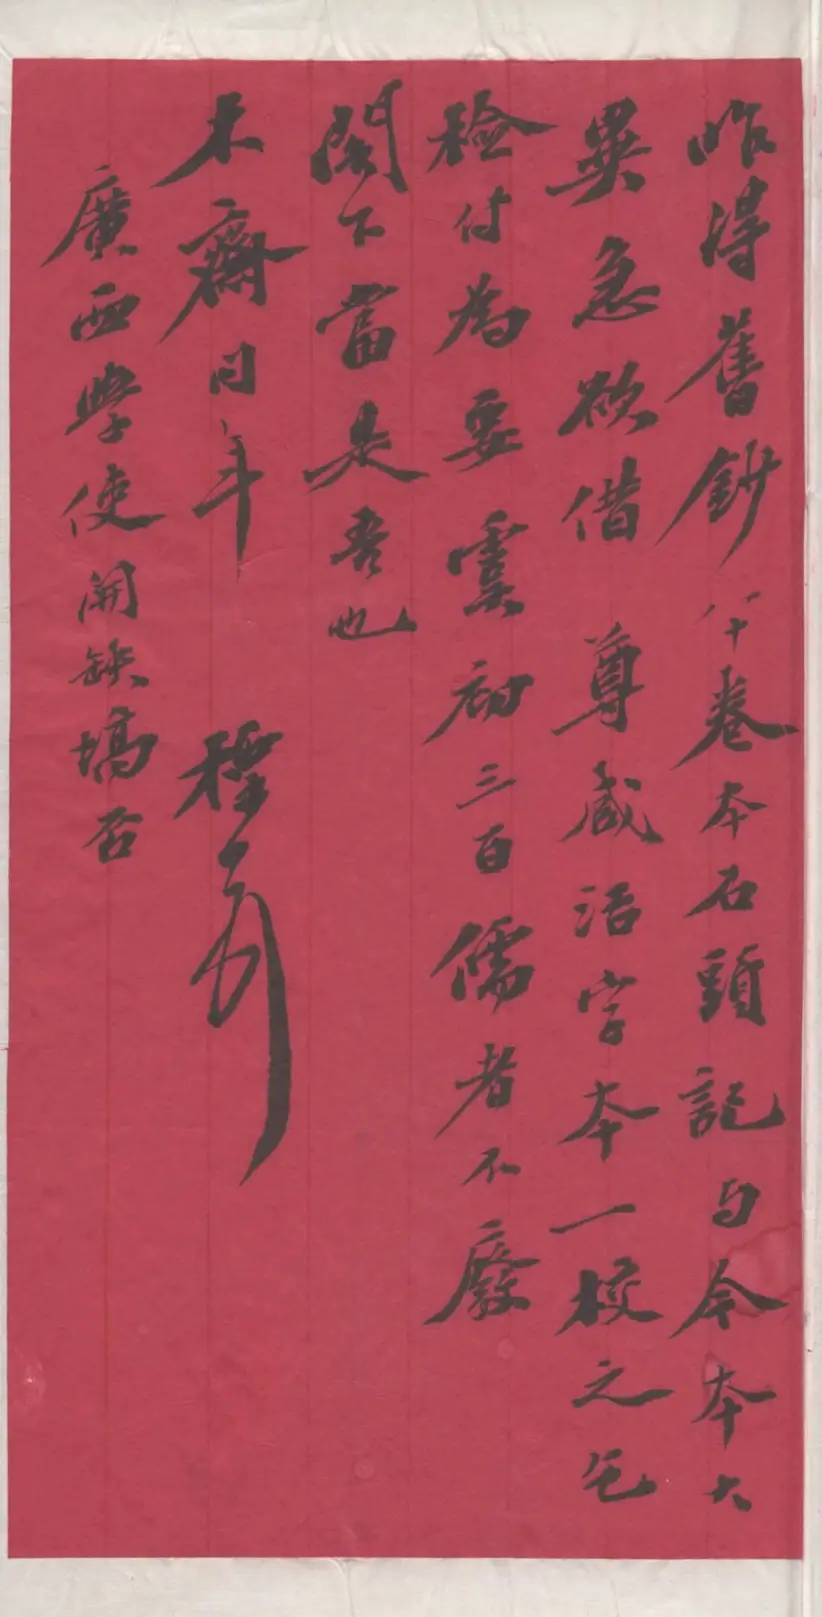 昨得舊鈔八十卷本石頭記与今本大
異急欲借尊藏活字本一校之乞
檢付為要虞初三百儒者不廢
閣下當是吾也
未齋同年
廣西學使開缺塙否